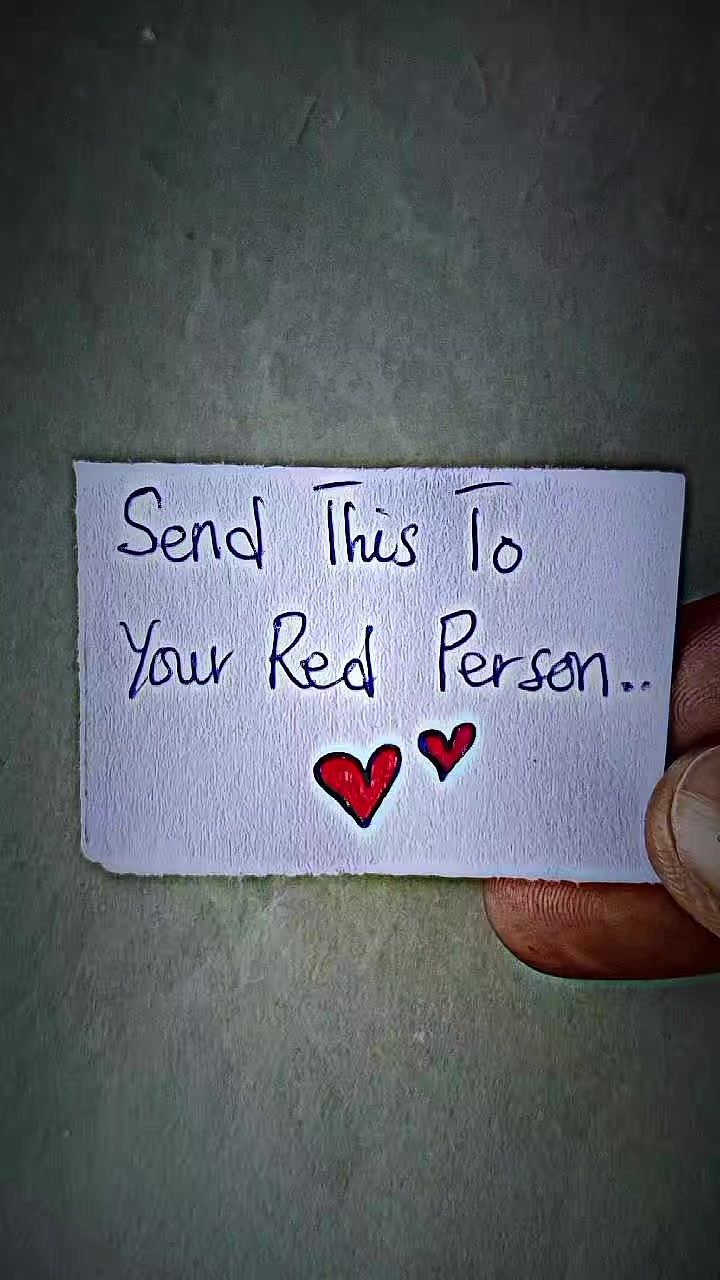 Send This To
Your Red Person..